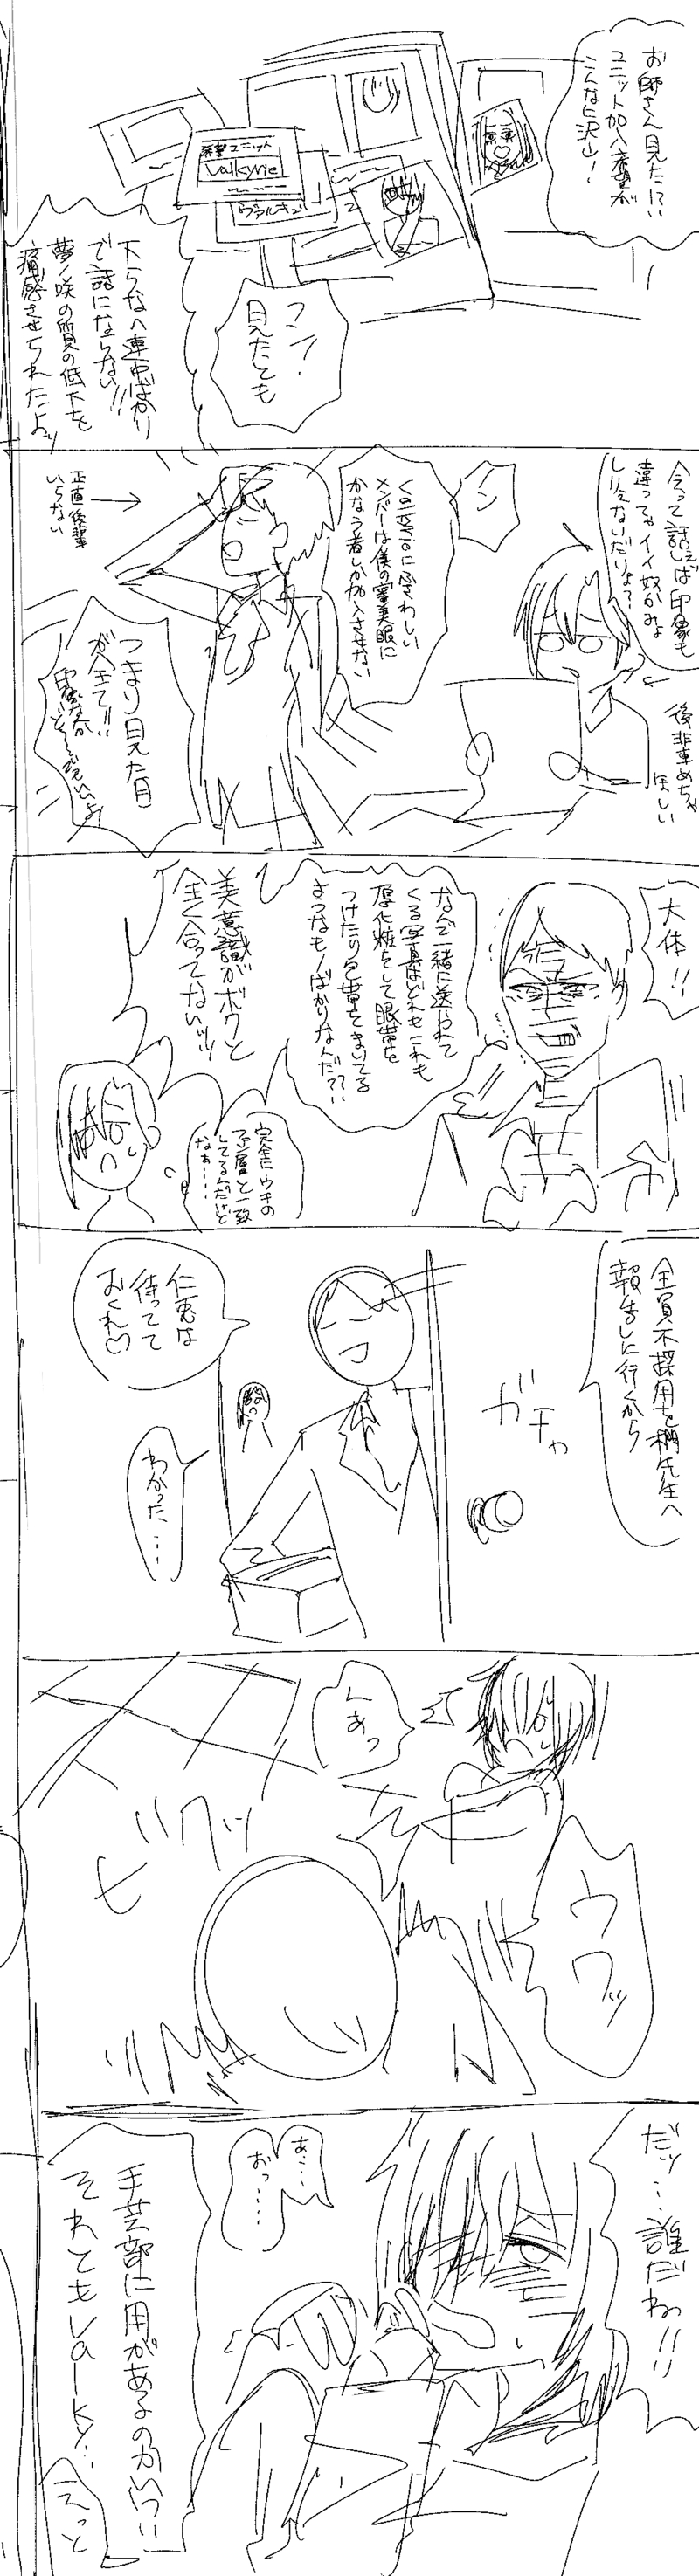 お師さん見たに!?
ユニット加入希望が
こんなに沢山!
希望ユニット
Valkyrie
ヴァルキュリ
フン!
見たとも
下らない連中ばかり
で話にならない!!
夢ノ咲の質の低下を
痛感させられたよッ
会って話せば印象も
違ってやイイ奴かみょ
しりぇないだりょ?
後輩めちゃ
ほしい
ノン
メンバーは僕の審美眼に
かなう者しか加入させない
正直後輩
いらない
つまり見た目
が全て!!
印象なんか
ど〜でもいいよ
大体!!
なんで一緒に送られて
くる写真はどれもこれも
厚化粧をして眼帯を
つけたり包帯をまいてる
ようなものばかりなんだ??
美意識がボクと
全く合ってないッッ
完全にウチの
ファン層と一致
してるんだけど
なぁ・・・・
全員不採用を椚先生へ
報告しに行くから
ガチャ
仁兎は
待ってて
おくれ♡
わかった…
んあっ
ビクッ
ウワッ
だッ…誰だね!!
あ……
おっ……
手芸部に用があるのかい!!
それともValky…
えっと